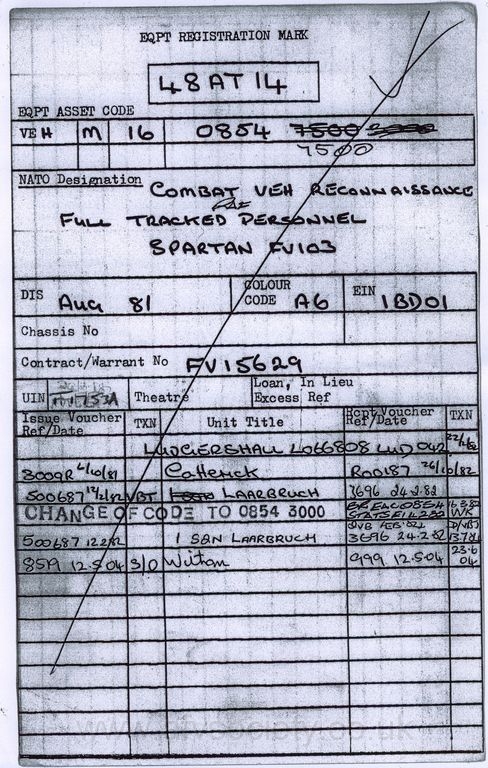 EQPT REGISTRATION MARK
48AT14
EQPT ASSET CODE
VEH M 16 0854 7500
7500
NATO Designation COMBAT VEH RECONNAISSANCE
FULL TRACKED PERSONNEL
SPARTAN FV103
DIS Aug 81 COLOUR CODE A6 EIN 1BD01
Chassis No
Contract/Warrant No FV15629
UIN Theatre Loan, In Lieu
Excess Ref
Issue Voucher Ref/Date TXN Unit Title Rcpt Voucher Ref/Date TXN
LUDGERSHALL LO66808 LUD 042
8009R 6/10/81 Catterick R00187 26/10/82
500687 VBT LAARBRUCH 3696 24.2.82
CHANGE OF CODE TO 0854 3000
500687 1 SQN LAARBRUCH 3696 24.2.82
8519 12.5.04 S/O Wilton 999 12.5.04 23.6 04